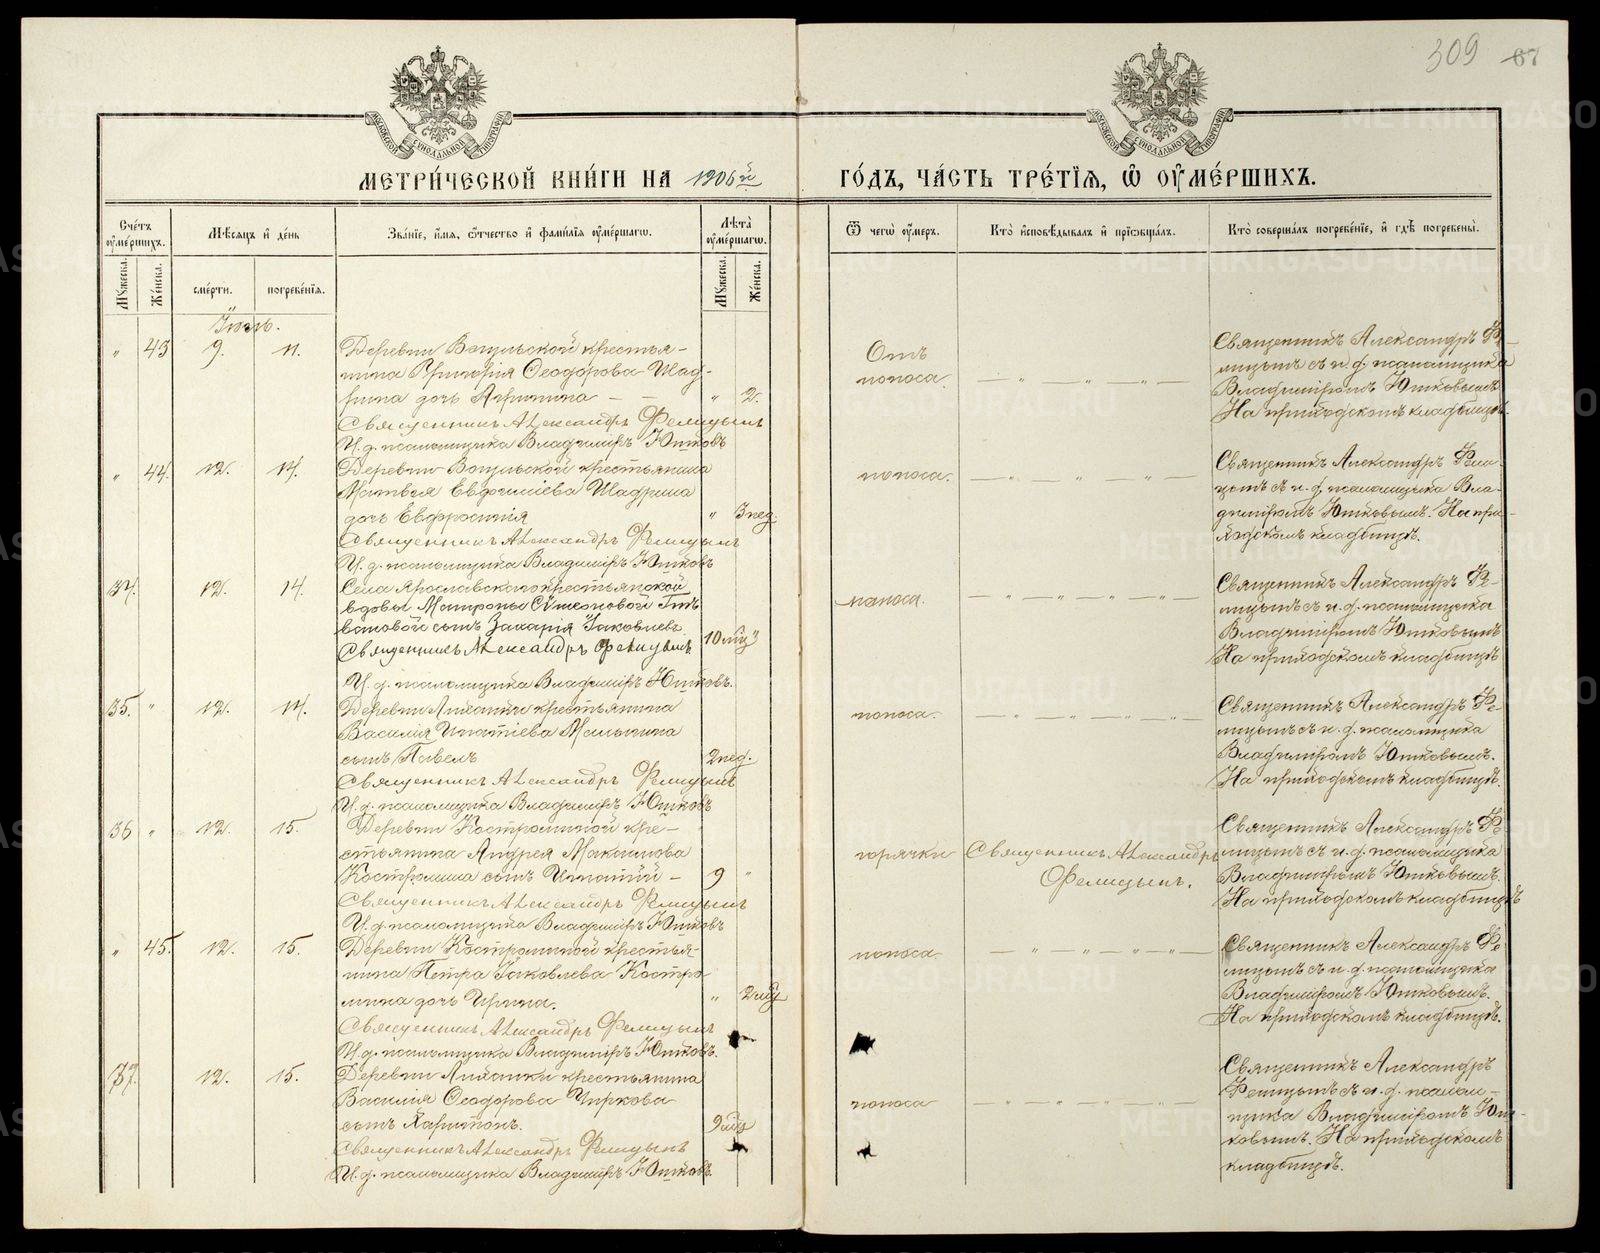 309 67
МЕТРИ́ЧЕСКОЙ КНИ́ГИ НА 1906й ГО́ДЪ, ЧА́СТЬ ТРЕ́ТІѦ, Ѡ ОУМЕ́РШИХЪ.
Сче́тъ оумершихъ.
Мѣсяцъ и день
Зва́ніе, имя, отчество и фамилія оумершагѡ.
Лѣта оумершагѡ.
Ѿ чегѡ оумеръ.
Кто исповѣдывалъ и пріобщалъ.
Кто совершалъ погребеніе, и гдѣ погребены.
Мужеска.
Женска.
смерти.
погребенія.
Мужеска.
Женска.
Іюль.
" 43 9. 11. Деревни Вогульской крестья-
нина Григорія Ѳеодорова Шад-
рина дочь Агрипина — — " 2.
Священникъ Александръ Фелицынъ
И. д. псаломщика Владиміръ Ютковъ
Отъ
поноса.
Священникъ Александръ Фе-
лицынъ съ и. д. псаломщика
Владиміромъ Ютковымъ
На приходскомъ кладбищѣ.
" 44. 12. 14. Деревни Вогульской крестьянина
Матвея Евдокимова Шадрина
дочь Евфросинія " 3 нед.
Священникъ Александръ Фелицынъ
И. д. псаломщика Владиміръ Ютковъ
поноса.
Священникъ Александръ Фели-
цынъ съ и. д. псаломщика Вла-
диміромъ Ютковымъ. На при-
ходскомъ кладбищѣ.
34. 12. 14. Села Ярославскаго крестьянской
вдовы Матроны Симеоновой
сынъ Захарія Іаковлевъ
Священникъ Александръ Фелицынъ 10 мц
И. д. псаломщика Владиміръ Ютковъ.
поноса.
Священникъ Александръ Фе-
лицынъ съ и. д. псаломщика
Владиміромъ Ютковымъ
На приходскомъ кладбищѣ
35. " 12. 14. Деревни крестьянина
Василія Игнатіева Мальгина
сынъ Павелъ 2 нед.
Священникъ Александръ Фелицынъ
И. д. псаломщика Владиміръ Ютковъ
поноса.
Священникъ Александръ Фе-
лицынъ съ и. д. псаломщика
Владиміромъ Ютковымъ.
На приходскомъ кладбищѣ.
36 " 12. 15. Деревни Костроминой кре-
стьянина Андрея Максимова
Костромина сынъ Игнатій — 9 "
Священникъ Александръ Фелицынъ
И. д. псаломщика Владиміръ Ютковъ
горячки
Священникъ Александръ
Фелицынъ.
Священникъ Александръ Фе-
лицынъ съ и. д. псаломщика
Владиміромъ Ютковымъ.
На приходскомъ кладбищѣ
" 45. 12. 15. Деревни Костроминой крестья-
нина Петра Іаковлева Костро-
мина дочь Ирина. " 2 мц
Священникъ Александръ Фелицынъ
И. д. псаломщика Владиміръ Ютковъ.
поноса
Священникъ Александръ Фе-
лицынъ съ и. д. псаломщика
Владиміромъ Ютковымъ.
На приходскомъ кладбищѣ.
37. 12. 15. Деревни крестьянина
Василія Ѳеодорова Чиркова
сынъ Харитонъ. 9 мц
Священникъ Александръ Фелицынъ
И. д. псаломщика Владиміръ Ютковъ.
поноса
Священникъ Александръ
Фелицынъ съ и. д. псалом-
щика Владиміромъ Ют-
ковымъ. На приходскомъ
кладбищѣ.
METRIKI.GASO-URAL.RU